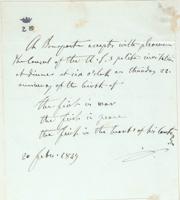 Bonaparte accepts with pleasure
the Consul of the U.S's polite invitation
at dinner at six o'clock on thursday 22
anniversary of the birth of
the first in war
the first in peace
the first in the hearts of his
20 Febr.